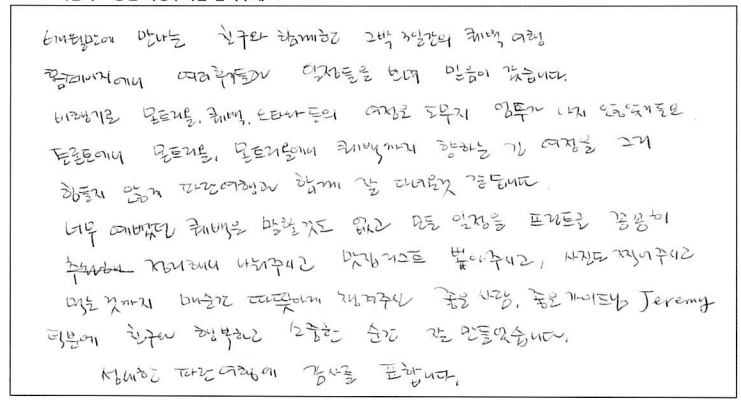 6개월만에 만나는 친구와 함께한 2박 3일간의 퀘백 여행
홈페이지에서 여러 후기들과 일정들을 보며 믿음이 갔습니다.
비행기로 몬트리올, 퀘백, 오타와 등의 여정은 도무지 엄두가 나지
토론토에서 몬트리올, 몬트리올에서 퀘백까지 향하는 긴 여정을 그리
힘들지 않게 파란여행과 함께 잘 다녀온것 같습니다.
너무 예뻤던 퀘백은 말할것도 없고 모든 일정을 프린트로 꼼꼼히
정리해서 나눠주시고 맛집리스트 뽑아주시고, 사진도 찍어주시고
먹는 것까지 매순간 따뜻하게 챙겨주신 좋은 사람, 좋은 가이드님 Jeremy
덕분에 친구와 행복하고 소중한 순간 잘 만들었습니다.
섬세한 파란여행에 감사를 표합니다.